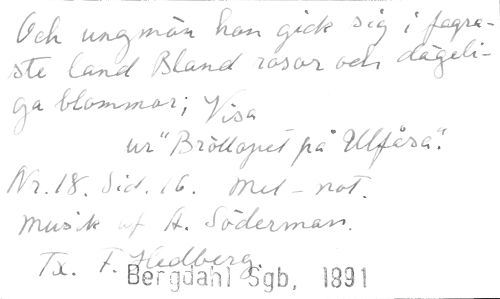 Och ungmön hon gick sig i fagra-
ste land Bland rosor och dägeli-
ga blommor; Visa
ur "Bröllopet på Ulfåsa".
Nr. 18. Sid. 16. Mel-not.
Musik af A. Söderman.
Tx. F. Hedberg.
Bergdahl Sgb, 1891